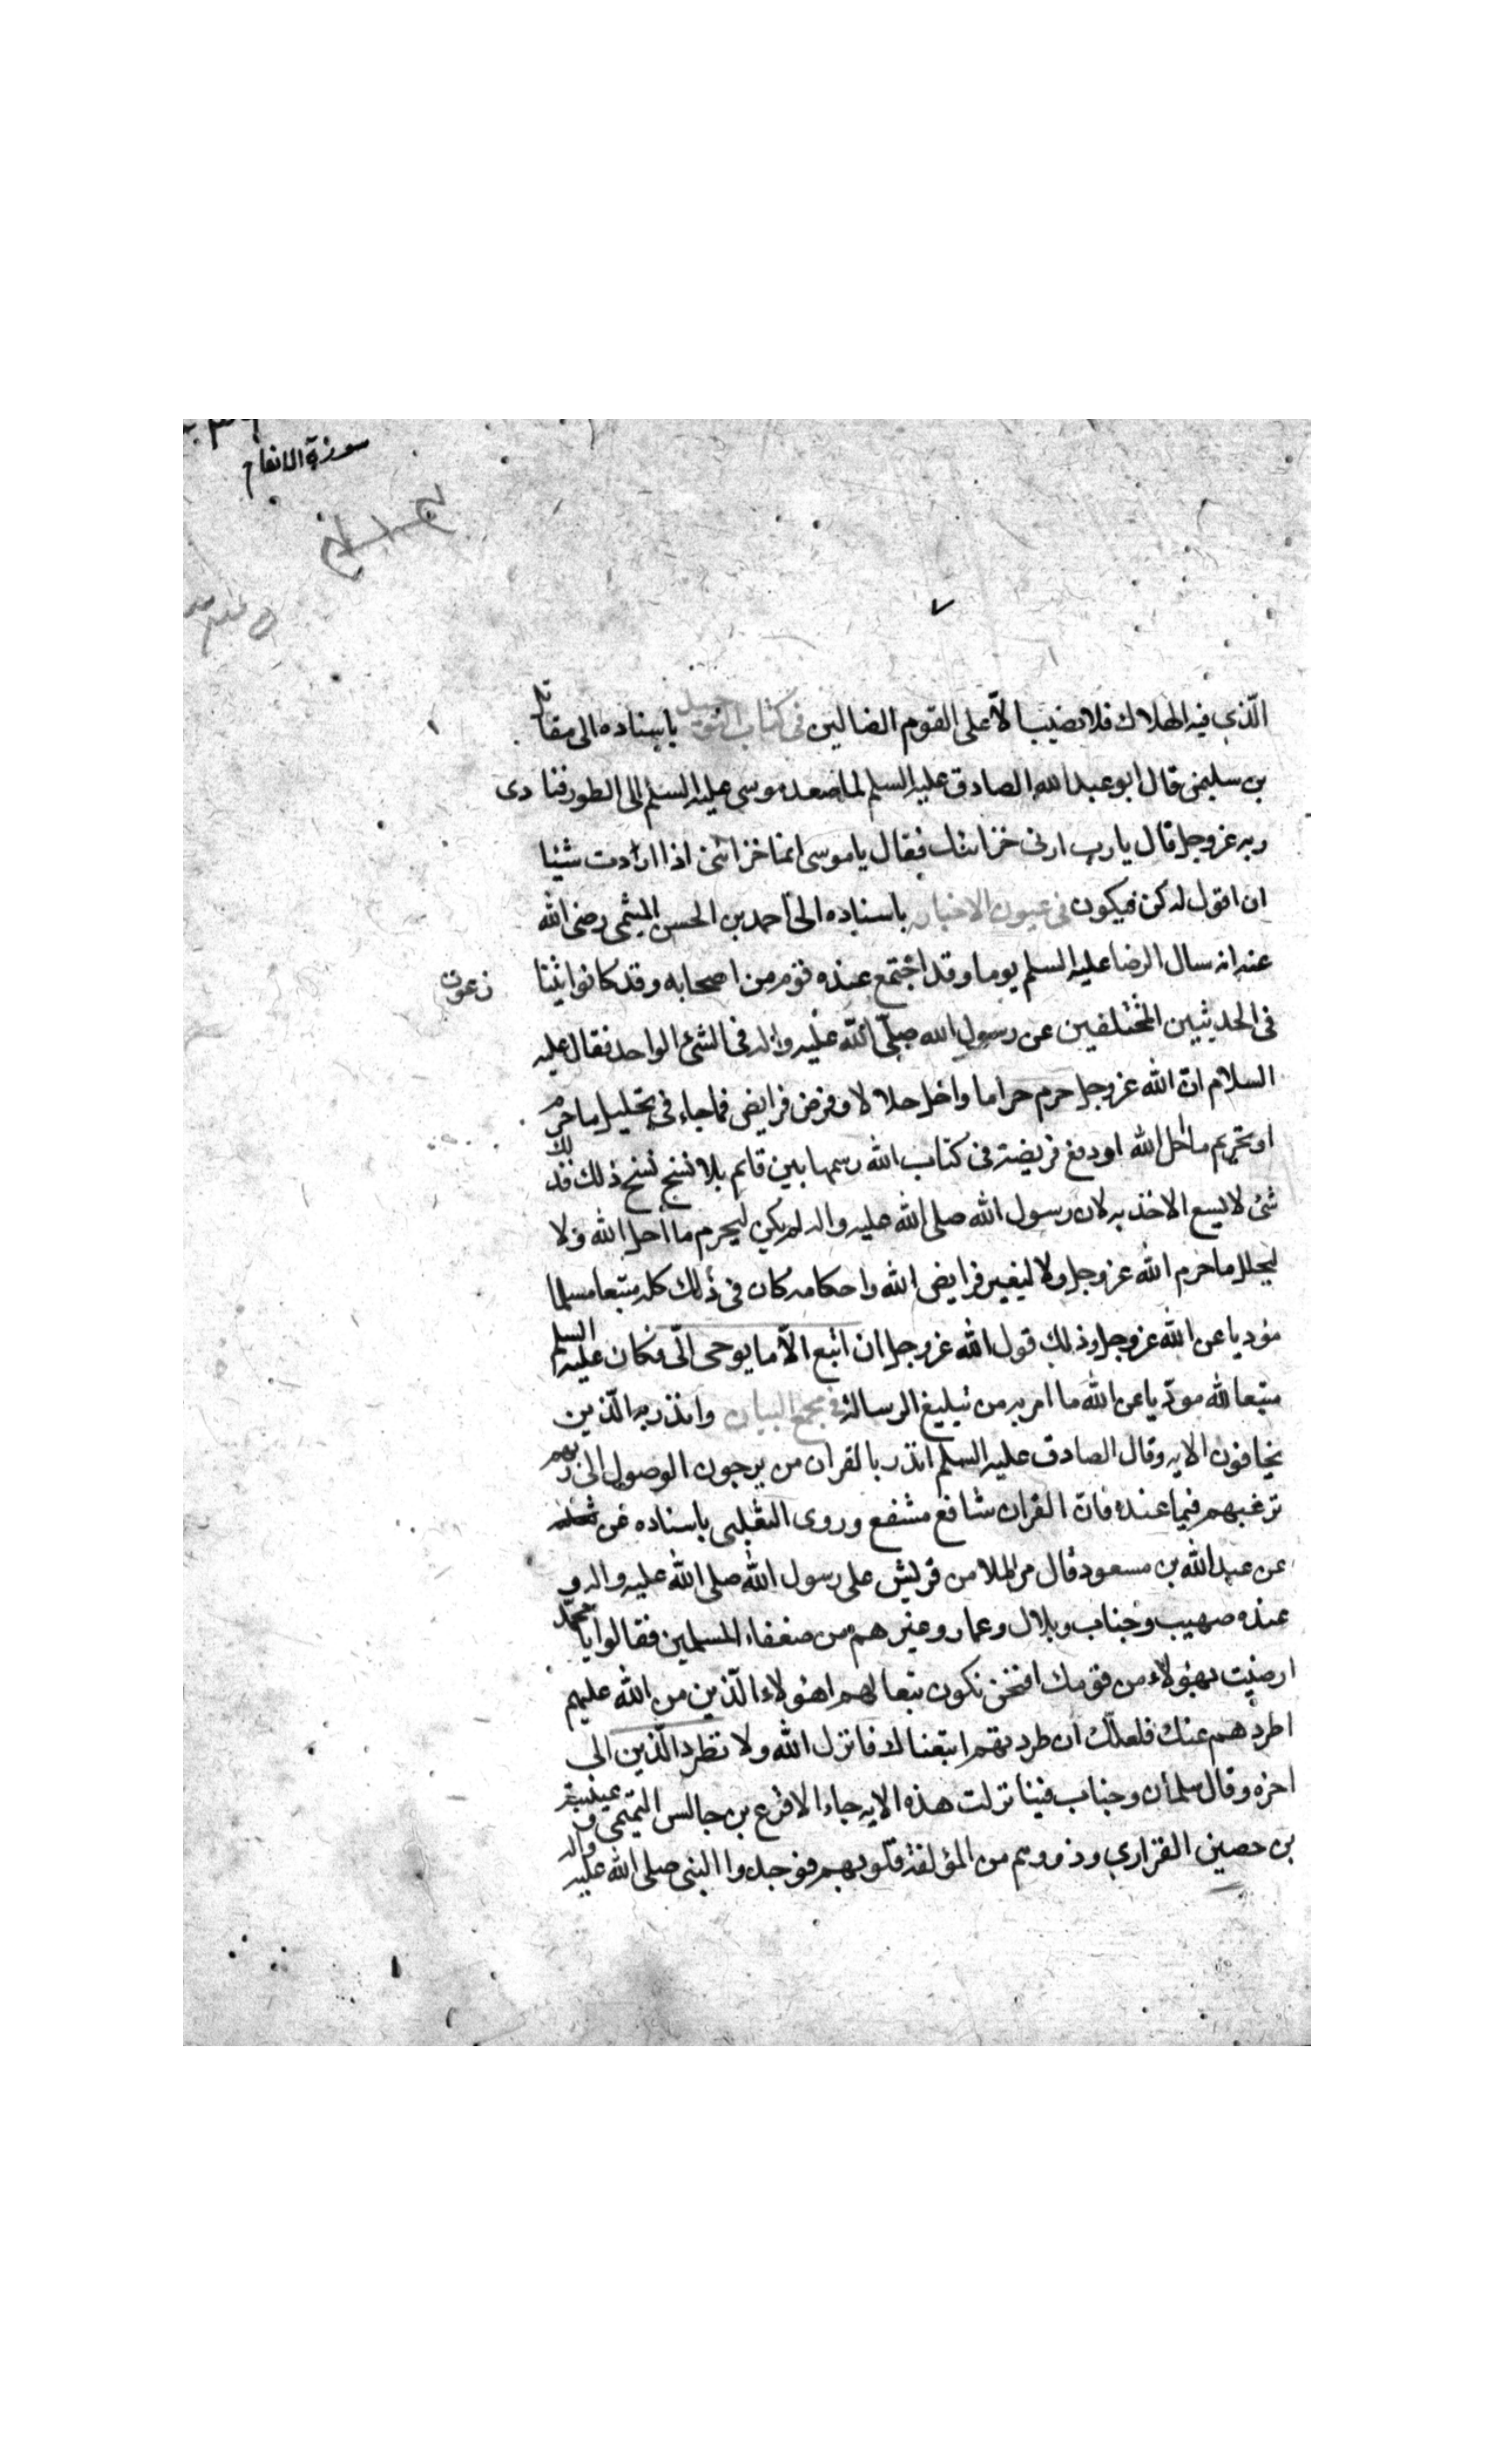 سورة الانعام
الّذي فيه الهلاك فلا نصيب الّا على القوم الضالين في كتاب التوحيد باسناده الى مقاتل
بن سليمن قال ابو عبد الله الصادق عليه السلم لما صعد موسى عليه السلم الى الطور فنادى
ربه عز وجل قال يا رب ارنى خزائنك فقال يا موسى انما خزائنى اذا اردت شيئا
ان اقول له كن فيكون في عيون الاخبار باسناده الى احمد بن الحسن الميثمى رضى الله
عنه انه سال الرضا عليه السلم يوما وقد اجتمع عنده قوم من اصحابه وقد كانوا يتنا
زعون
فى الحديثين المختلفين عن رسول الله صلّى الله عليه واله فى الشئ الواحد فقال عليه
السلام انّ الله عز وجل حرم حراما واحل حلالا وفرض فرايض فما جاء فى تحليل ما حرم
او تحريم ما احل الله او دفع فريضة فى كتاب الله رسمها بين قايم بلا نسخ نسخ ذلك فذلك
شئ لا يسع الاخذ به لان رسول الله صلى الله عليه واله لم يكن ليحرم ما احل الله ولا
ليحلل ما حرم الله عز وجل ولا ليغير فرايض الله واحكامه كان فى ذلك كله متبعا مسلما
موديا عن الله عز وجل وذلك قول الله عز وجل ان اتبع الّا ما يوحى الّى فكان عليه السلم
متبعا لله مودّيا عن الله ما امر به من تبليغ الرسالة في مجمع البيان وانذر به الّذين
يخافون الايه وقال الصادق عليه السلم انذر بالقران من يرجون الوصول الى ربهم
ترغبهم فيما عنده فانّ القران شافع مشفع وروى الثعلبى باسناده عن
عن عبد الله بن مسعود قال مر الملا من قريش على رسول الله صلى الله عليه واله و
عنده صهيب وخباب وبلال وعمار وغيرهم من ضعفاء المسلمين فقالوا يا محمّد
ارضيت بهؤلاء من قومك افنحن نكون تبعا لهم اهؤلاء الّذين من الله عليهم
اطردهم عنك فلعلّك ان طردتهم اتبعناك فانزل الله ولا تطرد الّذين الى
اخره وقال سلمان وخباب فينا نزلت هذه الايه جاء الاقرع بن حالس التميمى و عيينة
بن حصين الفزاري وذووهم من المؤلفة قلوبهم فوجدوا النبى صلى الله عليه واله